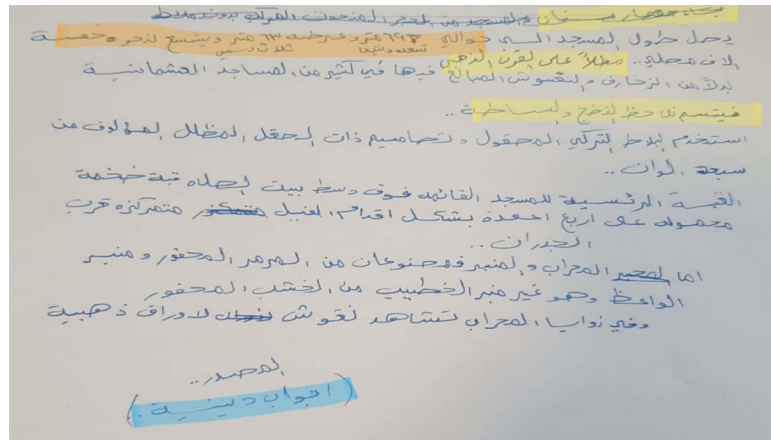 سنان والمسجد من الحجر المنحوت المركب بدون ملاط
يصل طول المسجد الى حوالي ٦٩ متر وعرضه ٦٣ متر ويتسع لنحو خمسة
تسعة وستين ثلاث وستين
الاف مصلي.. مطلاً على القرن الذهبي
بدلاً من الزخارف والنقوش المبالغ فيها في كثير من المساجد العثمانية
فيتسم نلاحظ النضج والبساطة..
استخدم البلاط التركي المصقول وتصاميم ذات الحقل المظلل المؤلوف من
سبعة الوان..
القبة الرئسية للمسجد القائمه فوق وسط بيت الصلاه قبة ضخمة
محموله على اربع اعمدة بشكل اقدام الفيل متمركزه قرب
الجدران..
اما المحراب والمنبر فمصنوعان من المرمر المحفور ومنبر
الواعظ وهو غير منبر الخطيب من الخشب المحفور
وفي زوايا المحراب تشاهد نقوش لاوراق ذهبية
المصدر..
(ابواب دينية.)